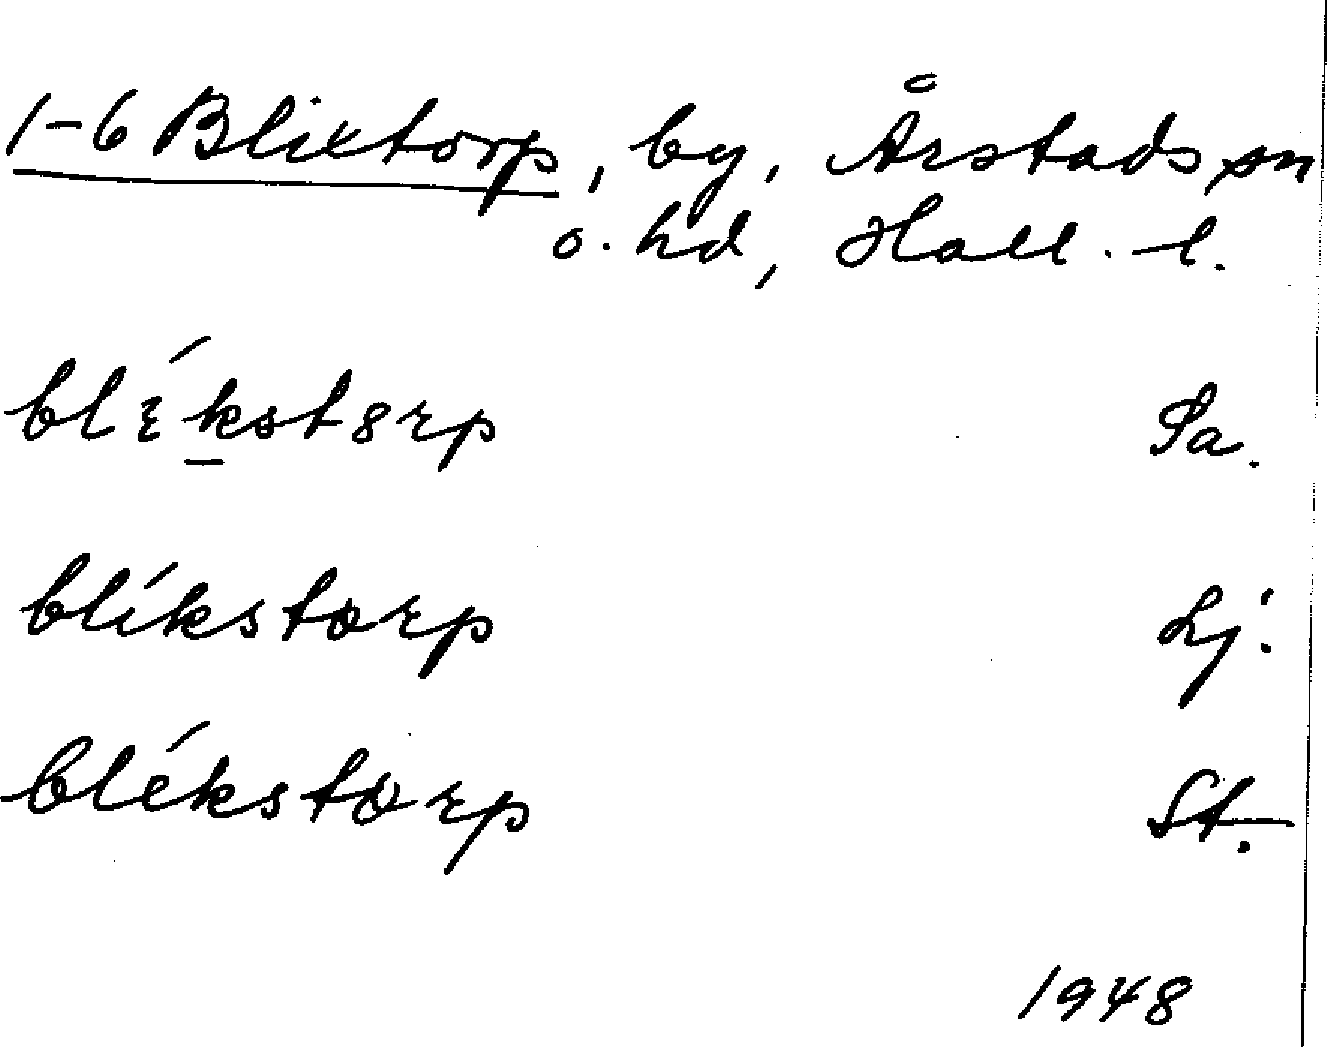 1-6 Blixtorp, by, Årstads sn
o. hd, Hall. l.
blɛ́kst8rp Sa.
blíkstɷrp Lj.
blékstɷrp St.
1948